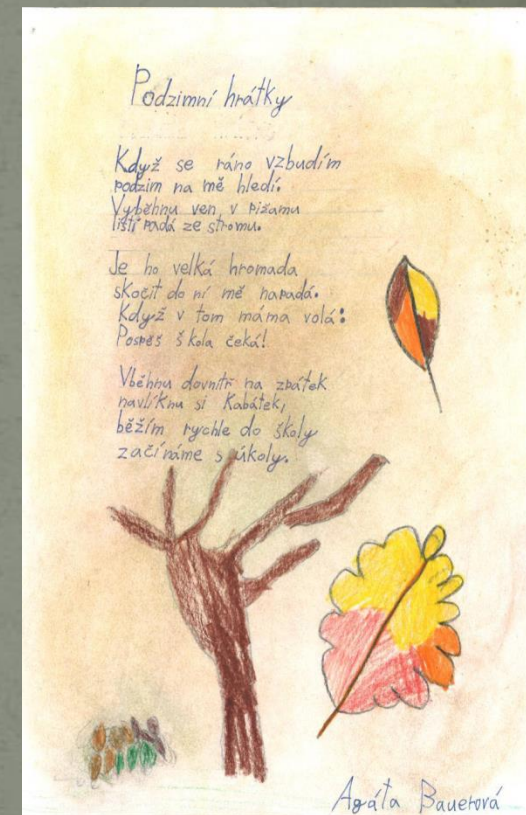 Podzimní hrátky
Když se ráno vzbudím
podzim na mě hledí.
Vyběhnu ven, v pižamu
listí padá ze stromu.
Je ho velká hromada
skočit do ní mě napadá.
Když v tom máma volá:
Pospěš škola čeká!
Vběhnu dovnitř na zpátek
navlíknu si kabátek,
běžím rychle do školy
začínáme s úkoly.
Agáta Bauerová